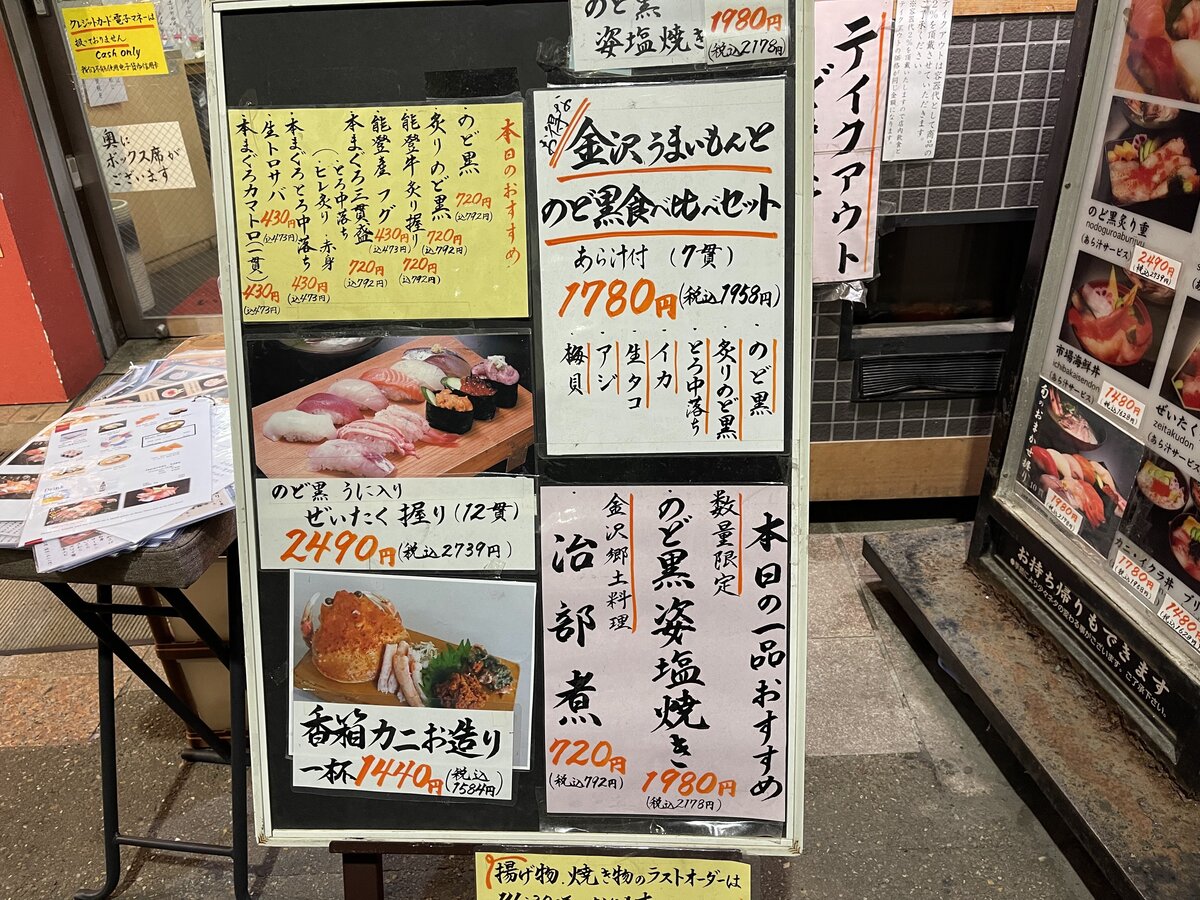 クレジットカード電子マネーは
扱っておりません
Cash only
奥に
ボックス席が
ございます
のど黒
姿塩焼き
1980円
(税込2178円)
本日のおすすめ
のど黒 720円
(込792円)
炙りのど黒 720円
(込792円)
能登牛炙り握り 720円
(込792円)
能登産フグ 430円
(込473円)
本まぐろ三貫盛 720円
(込792円)
(とろ中落ち
ヒレ炙り・赤身
本まぐろとろ中落ち 430円
(込473円)
生トロサバ 430円
(込473円)
本まぐろカマトロ(一貫) 430円
(込473円)
お得
金沢うまいもんと
のど黒食べ比べセット
あら汁付 (7貫)
1780円(税込1958円)
・のど黒
・炙りのど黒
・とろ中落ち
・イカ
・生タコ
・アジ
・梅貝
のど黒 うに入り
ぜいたく握り(12貫)
2490円(税込2739円)
香箱カニお造り
一杯1440円(税込1584円)
本日の一品おすすめ
数量限定
のど黒姿塩焼き
1980円
(税込2178円)
金沢郷土料理
治部煮
720円
(税込792円)
揚げ物.焼き物のラストオーダーは
テイクアウト
のど黒炙り重
nodoguroaburijyu
(あら汁サービス)
2490円
(税込2739円)
市場海鮮丼
ichibakaisendon
(あら汁サービス)
1480円
(税込1628円)
ぜいたく丼
zeitakudon
(あら汁サービス)
旬のおまかせ握り
1780円
カニ・イクラ丼
1780円
1480円
お持ち帰りもできます